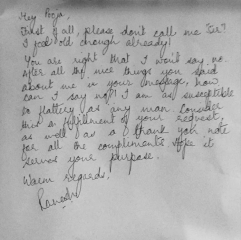 Hey Pooja,
First of all, please don't call me 'Sir'
I feel old enough already!
You are right that I won't say no.
After all the nice things you said
about me in your message, how
can I say no? I am as susceptible
to flattery as any man. Consider
this a fulfillment of your request,
as well as a thank you note
for all the compliments. Hope it
serves your purpose.
Warm regards,